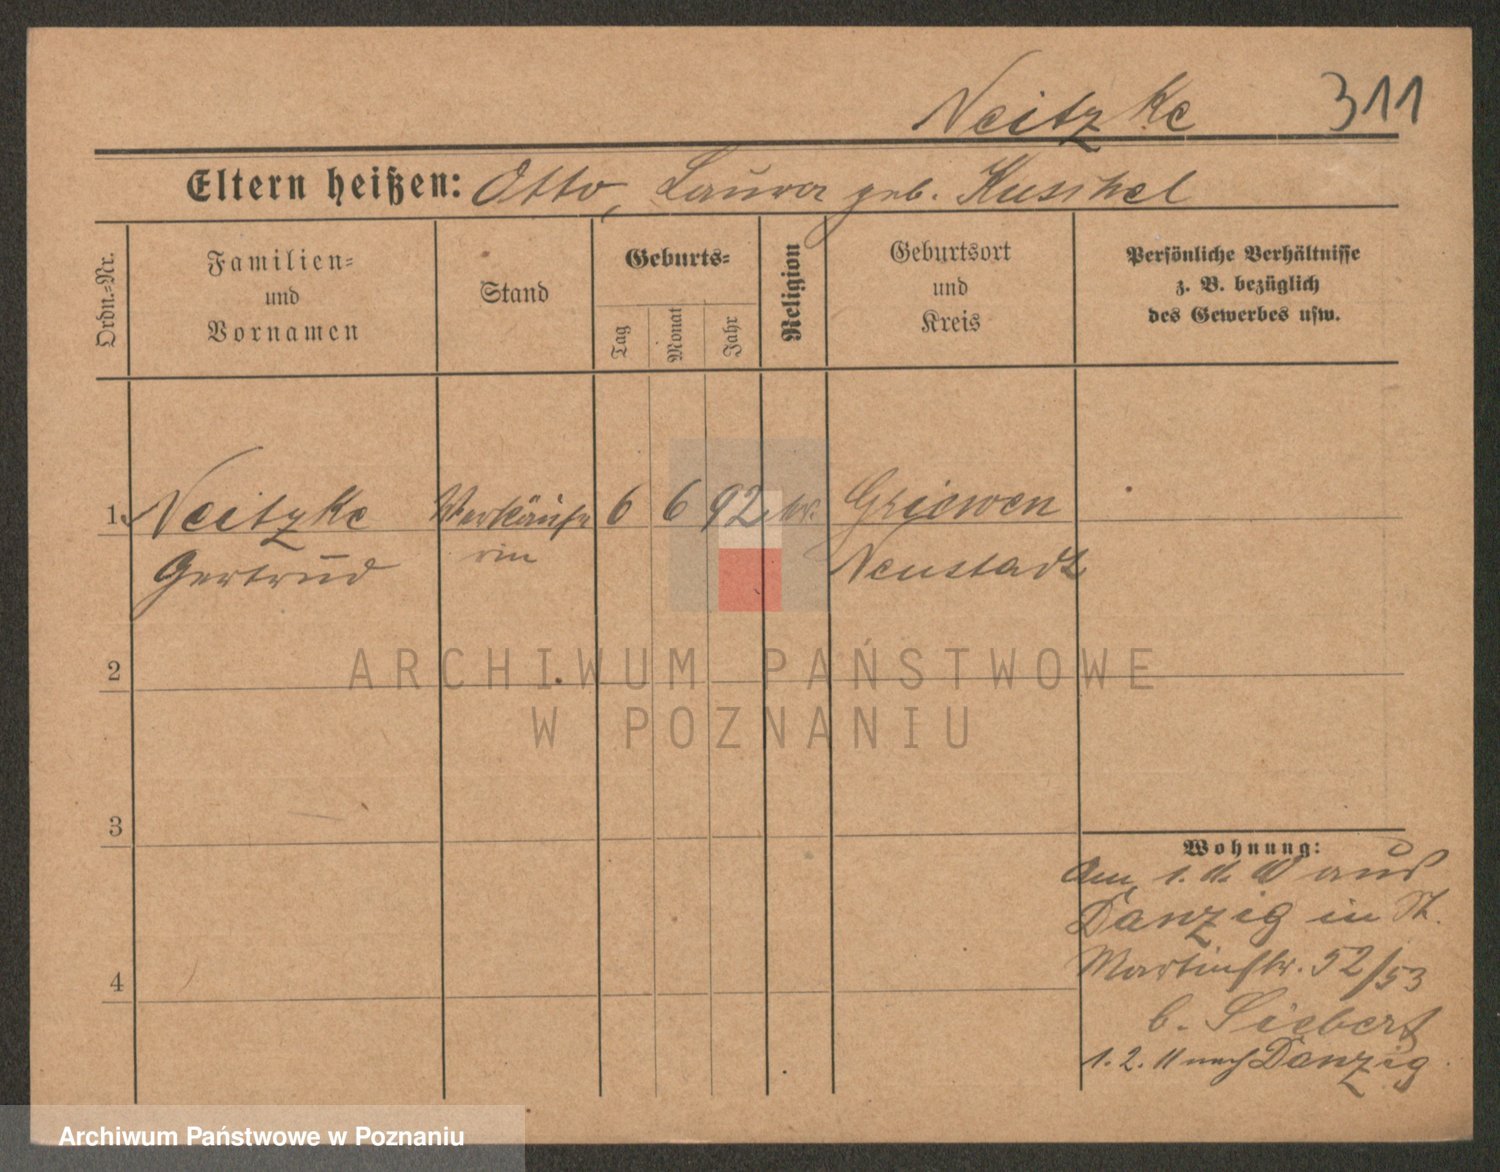 Neitzke 311
Eltern heißen: Otto, Laura geb. Kuschel
Ordn.=Nr.
Familien=
und
Vornamen
Stand
Geburts=
Tag
Monat
Jahr
Religion
Geburtsort
und
Kreis
Persönliche Verhältnisse
z. B. bezüglich
des Gewerbes usw.
1 Neitzke Verkäufe 6 6 92 Griewen
Gertrud rin Neustadt
2
ARCHIWUM PAŃSTWOWE
W POZNANIU
3
4
Wohnung:
Am 1. 11. 10 aus
Danzig in St.
Martinstr. 52/53
b. Siebert
1. 2. 11 nach Danzig.
Archiwum Państwowe w Poznaniu